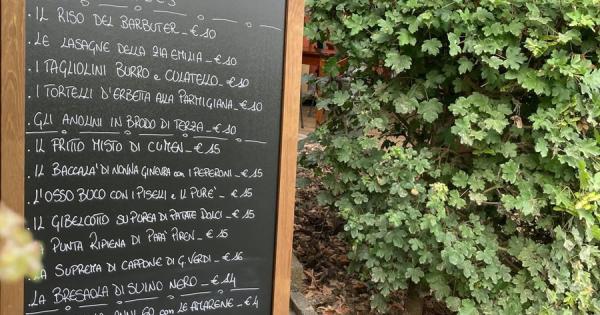 . IL RISO DEL BARBUTER _ € 10
. LE LASAGNE DELLA ZIA EMILIA _ € 10
. I TAGLIOLINI BURRO e CULATELLO _ € 10
. I TORTELLI D'ERBETTA ALLA PARMIGIANA _ € 10
. GLI ANOLINI IN BRODO DI TERZA _ € 10
. IL FRITTO MISTO DI CUMEN _ € 15
IL BACCALA' DI NONNA GINEVRA con I PEPERONI _ € 15
L'OSSO BUCO CON I PISELLI e IL PURE' _ € 15
. IL GIBELCOTTO SU PUREA DI PATATE DOLCI _ € 15
PUNTA RIPIENA DI PARA' PIREN _ € 15
LA SUPREMA DI CAPPONE DI G. VERDI _ € 16
. LA BRESAOLA DI SUINO NERO _ € 14
ANNI 60 con LE AMARENE _ € 4